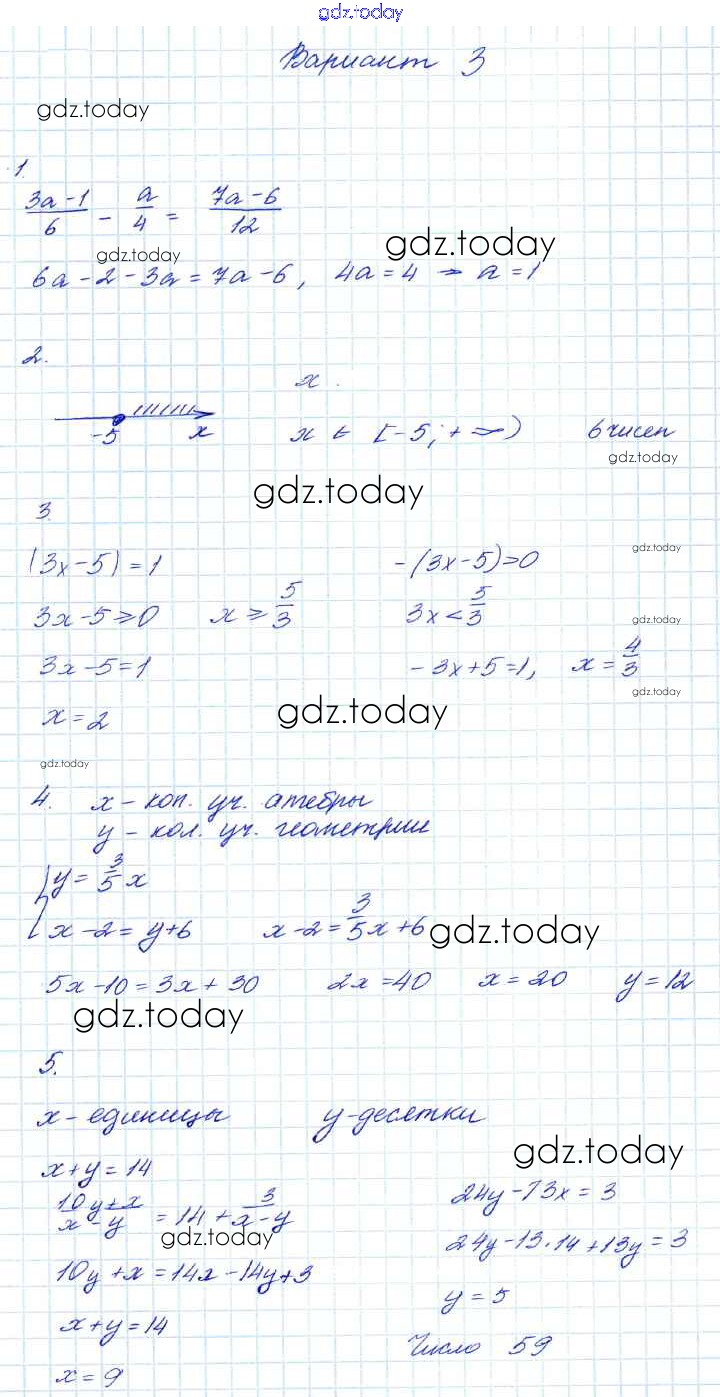 gdz.today
Вариант 3
gdz.today
1.
(3a-1)/6 - a/4 = (7a-6)/12
gdz.today gdz.today
6a-2-3a=7a-6, 4a=4 → a=1
2.
x.
-5 x x ∈ [-5; +∞) 6 чисел
gdz.today
gdz.today
3.
|3x-5|=1 -(3x-5)>0
gdz.today
3x-5≥0 x ≥ 5/3 3x < 5/3
gdz.today
3x-5=1 -3x+5=1, x = 4/3
gdz.today
x=2
gdz.today
gdz.today
4. x - кол. уч. алгебры
y - кол. уч. геометрии
{ y = 3/5 x
x-2=y+6 x-2 = 3/5 x+6
gdz.today
5x-10=3x+30 2x=40 x=20 y=12
gdz.today
5.
x - единицы y - десятки
gdz.today
x+y=14
(10y+x)/(x-y) = 14 + 3/(x-y)
gdz.today
10y+x=14x-14y+3
x+y=14
x=9
24y-13x=3
24y-13·14+13y=3
y=5
Число 59